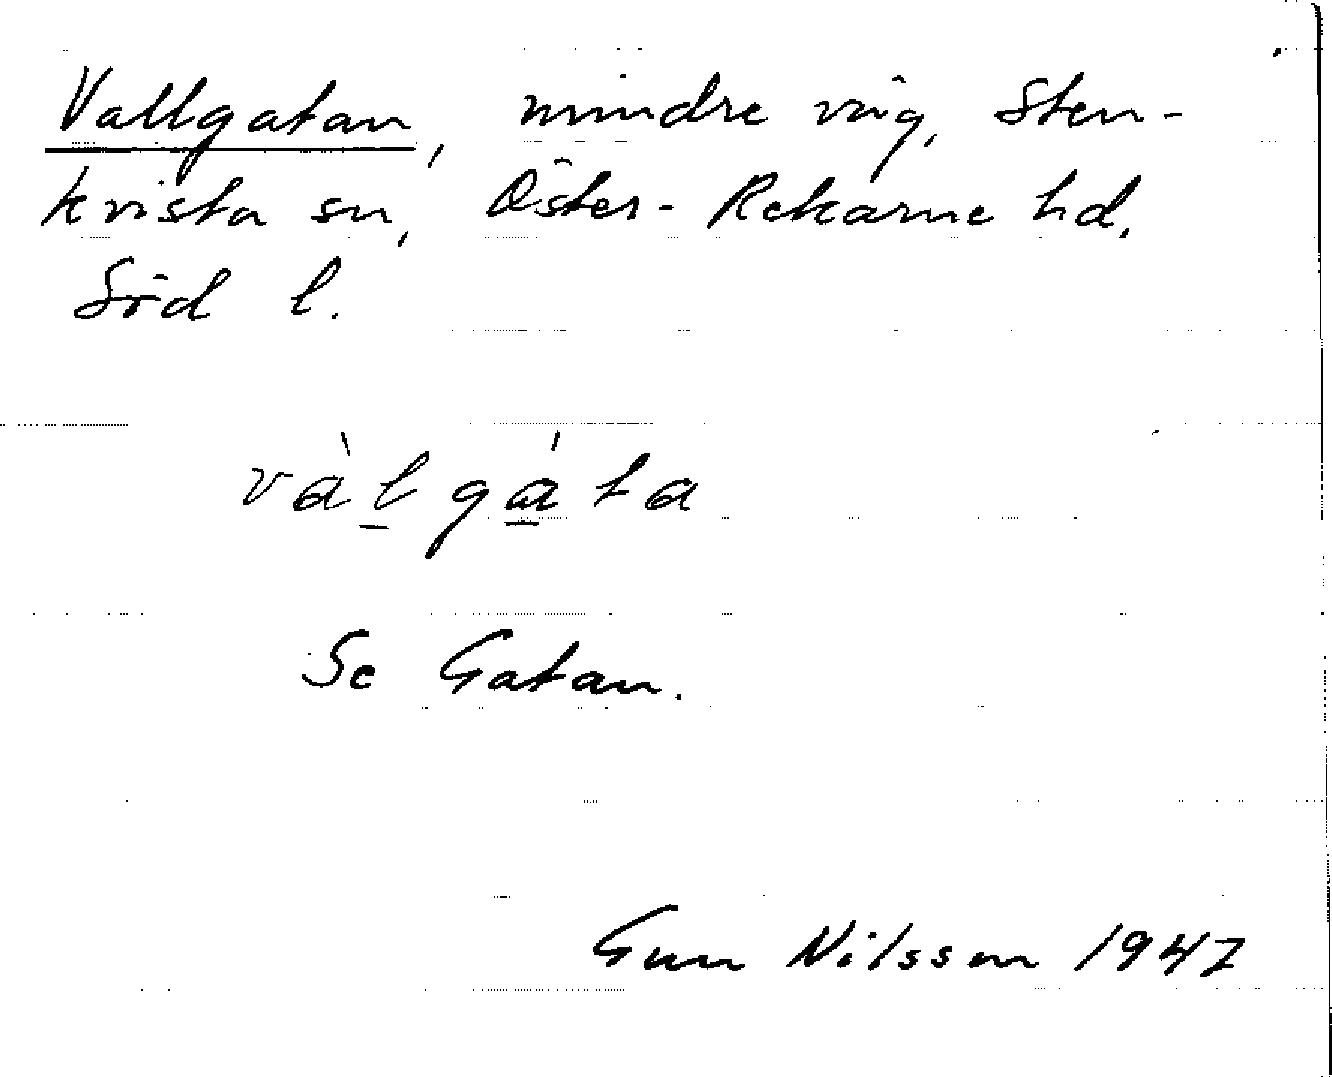 Vallgatan, mindre väg, Sten-
kvista sn, Öster-Rekarne hd,
Söd l.
vàlgáta
Se Gatan.
Gun Nilsson 1947